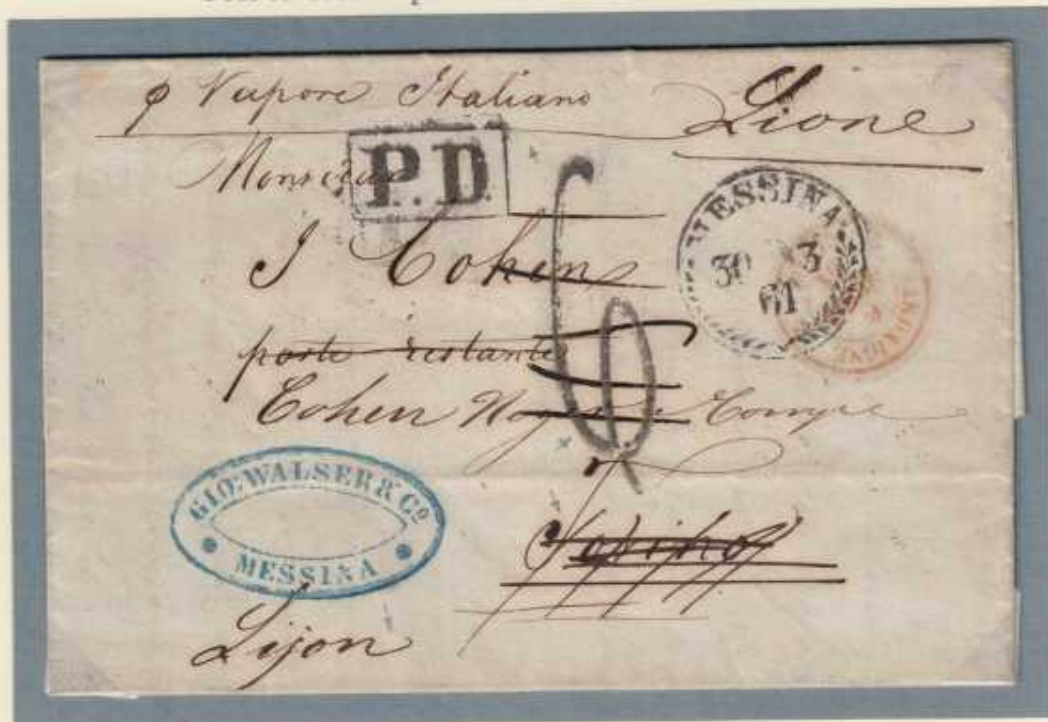 p Vapore Italiano
Lione
Monsieur
P.D.
J Cohen
MESSINA
30 3
61
poste restante
Cohen
6
GIO: WALSER & Cº
MESSINA
Torino
Lijon